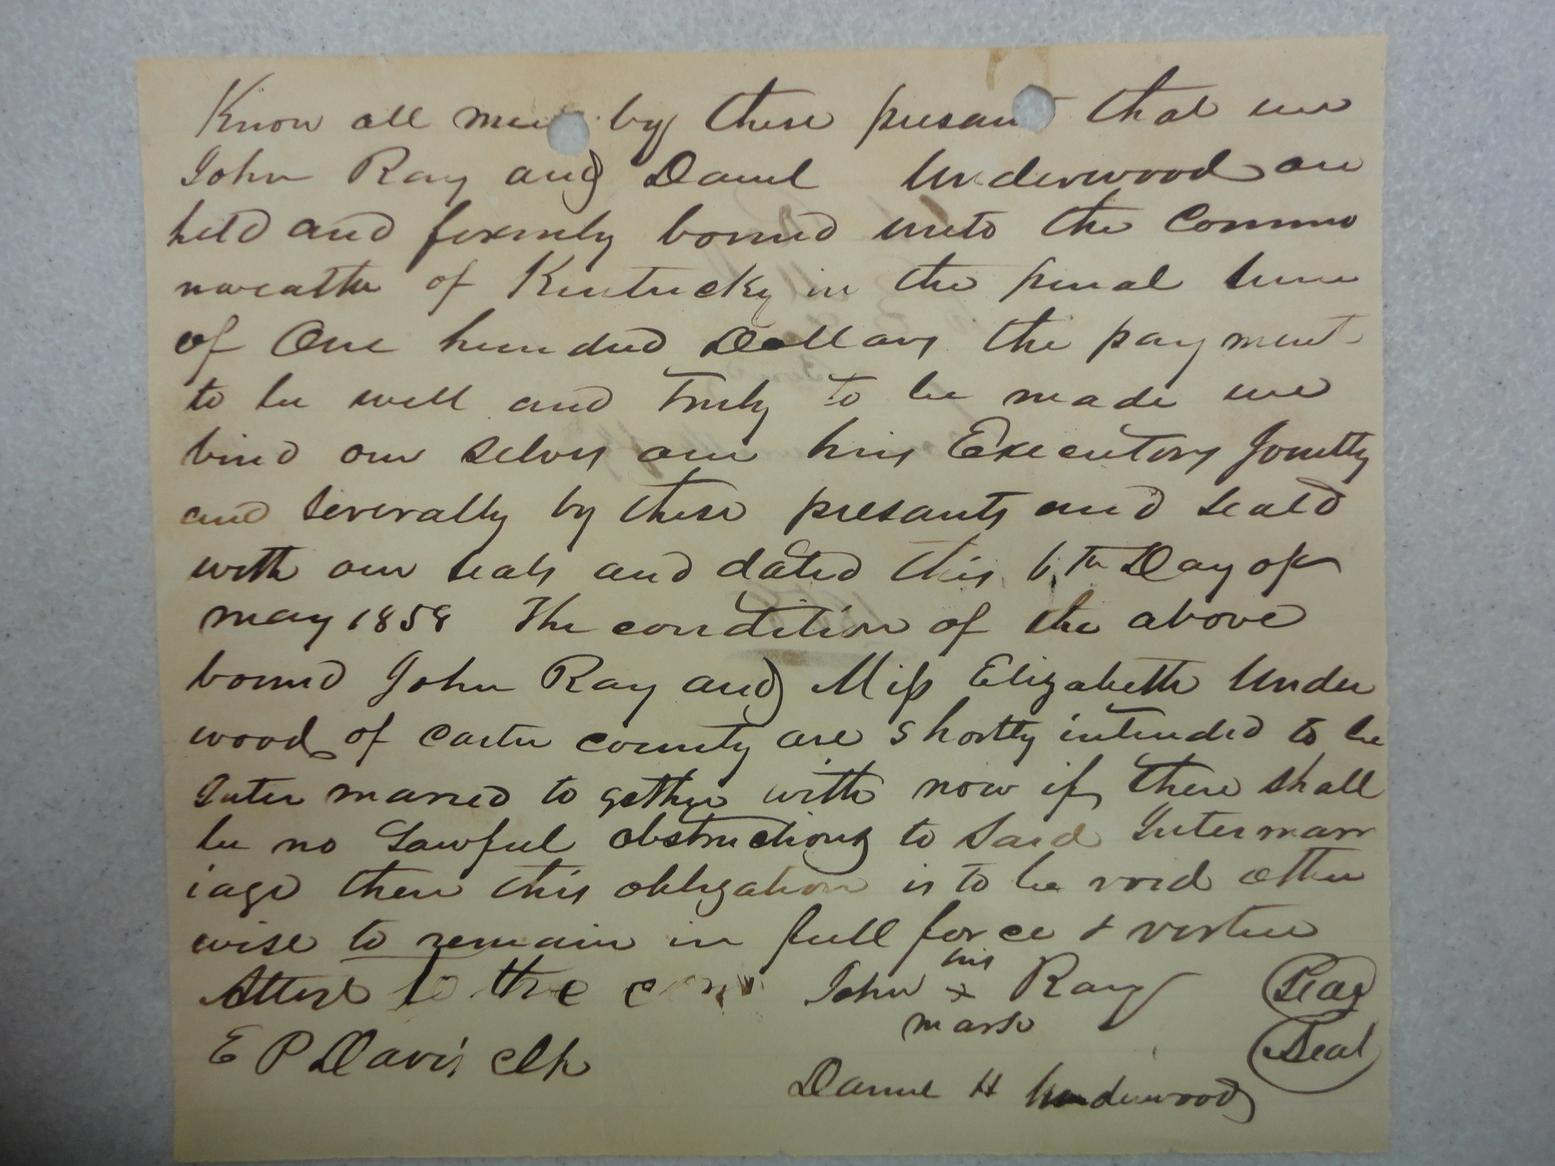 Know all men by these presan that we
John Ray and Daniel Underwood are
held and firmly bound unto the Commo
nwealth of Kentucky in the penal sum
of One hundred Dollars the payment
to be well and truly to be made we
bind our selvs our hirs Executors Jointly
and severally by these presants and seald
with our seals and dated this 6th Day of
may 1858 The condition of the above
bound John Ray and Miss Elizabeth Under
wood of carter county are shortly intended to be
Inter married to gether with now if there shall
be no Lawful obstructions to said Intermarr
iage then this obligation is to be void other
wise to remain in full force & vertue
Attest to the John his x Ray Seal
mark
E P Davis clk Seal
Daniel H Underwood